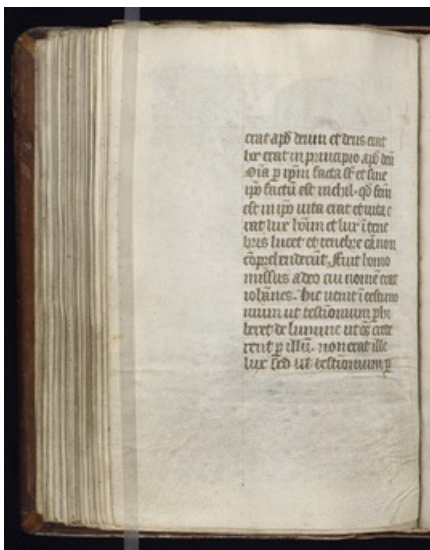 erat apd̄ deum et deus erat
hoc erat in principio apd̄ deū
Oīa ꝑ ip̄m facta sūt et sine
ip̄o factū est nichil · qd̄ factū
est in ip̄o uita erat et uita e
rat lux hoīm et lux ī tene
bris lucet et tenebre eā non
cōprehenderūt. Fuit homo
missus a deo cui nomē erat
iohānes. Hic uenit ī testimo
nium ut testimonium phi
beret de lumine ut oēs crede
rent ꝑ illū. non erat ille
lux sed ut testimonium ꝑ